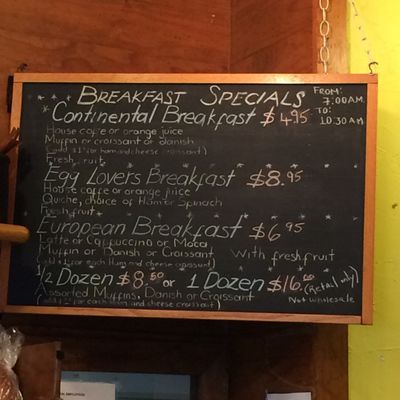 BREAKFAST SPECIALS
FROM:
7:00AM
TO:
10:30AM
Continental Breakfast $4.95
House coffe or orange juice
Muffin or croissant or danish
(add $1° for ham and cheese croissant)
Fresh fruit
Egg Lovers Breakfast $8.95
House coffe or orange juice
Quiche, choice of Ham or Spinach
Fresh fruit
European Breakfast $6.95
Latte or Cappuccino or Moca
Muffin or Danish or Croissant With fresh fruit
(add $1° for each Ham and cheese croissant)
1/2 Dozen $8.50 or 1 Dozen $16.00 (Retail only)
Assorted Muffins, Danish or Croissant Not wholesale
(add $1° for each ham and cheese croissant)